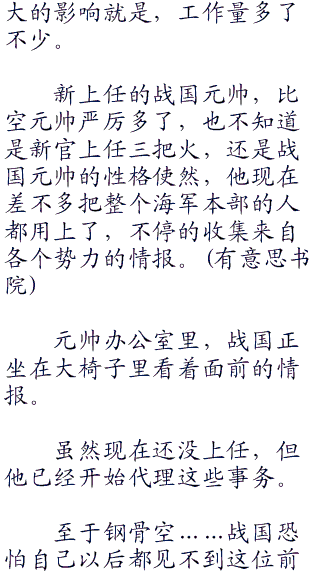 大的影响就是，工作量多了
不少。
新上任的战国元帅，比
空元帅严厉多了，也不知道
是新官上任三把火，还是战
国元帅的性格使然，他现在
差不多把整个海军本部的人
都用上了，不停的收集来自
各个势力的情报。(有意思书
院)
元帅办公室里，战国正
坐在大椅子里看着面前的情
报。
虽然现在还没上任，但
他已经开始代理这些事务。
至于钢骨空……战国恐
怕自己以后都见不到这位前